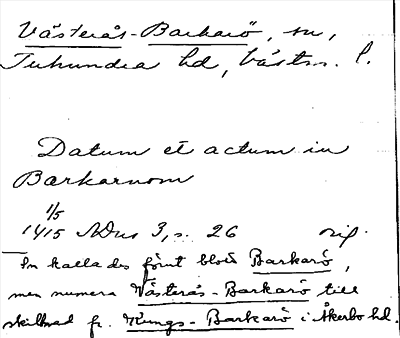 Västerås-Barkarö, sn,
Tuhundra hd, Västm. l.
Datum et actum in
Barkarnom
1/5
1415 NDns 3, s. 26 orig.
Sn kallades förut blott Barkarö,
men numera Västerås-Barkarö till
skillnad fr. Kungs-Barkarö i Åkerbo hd.